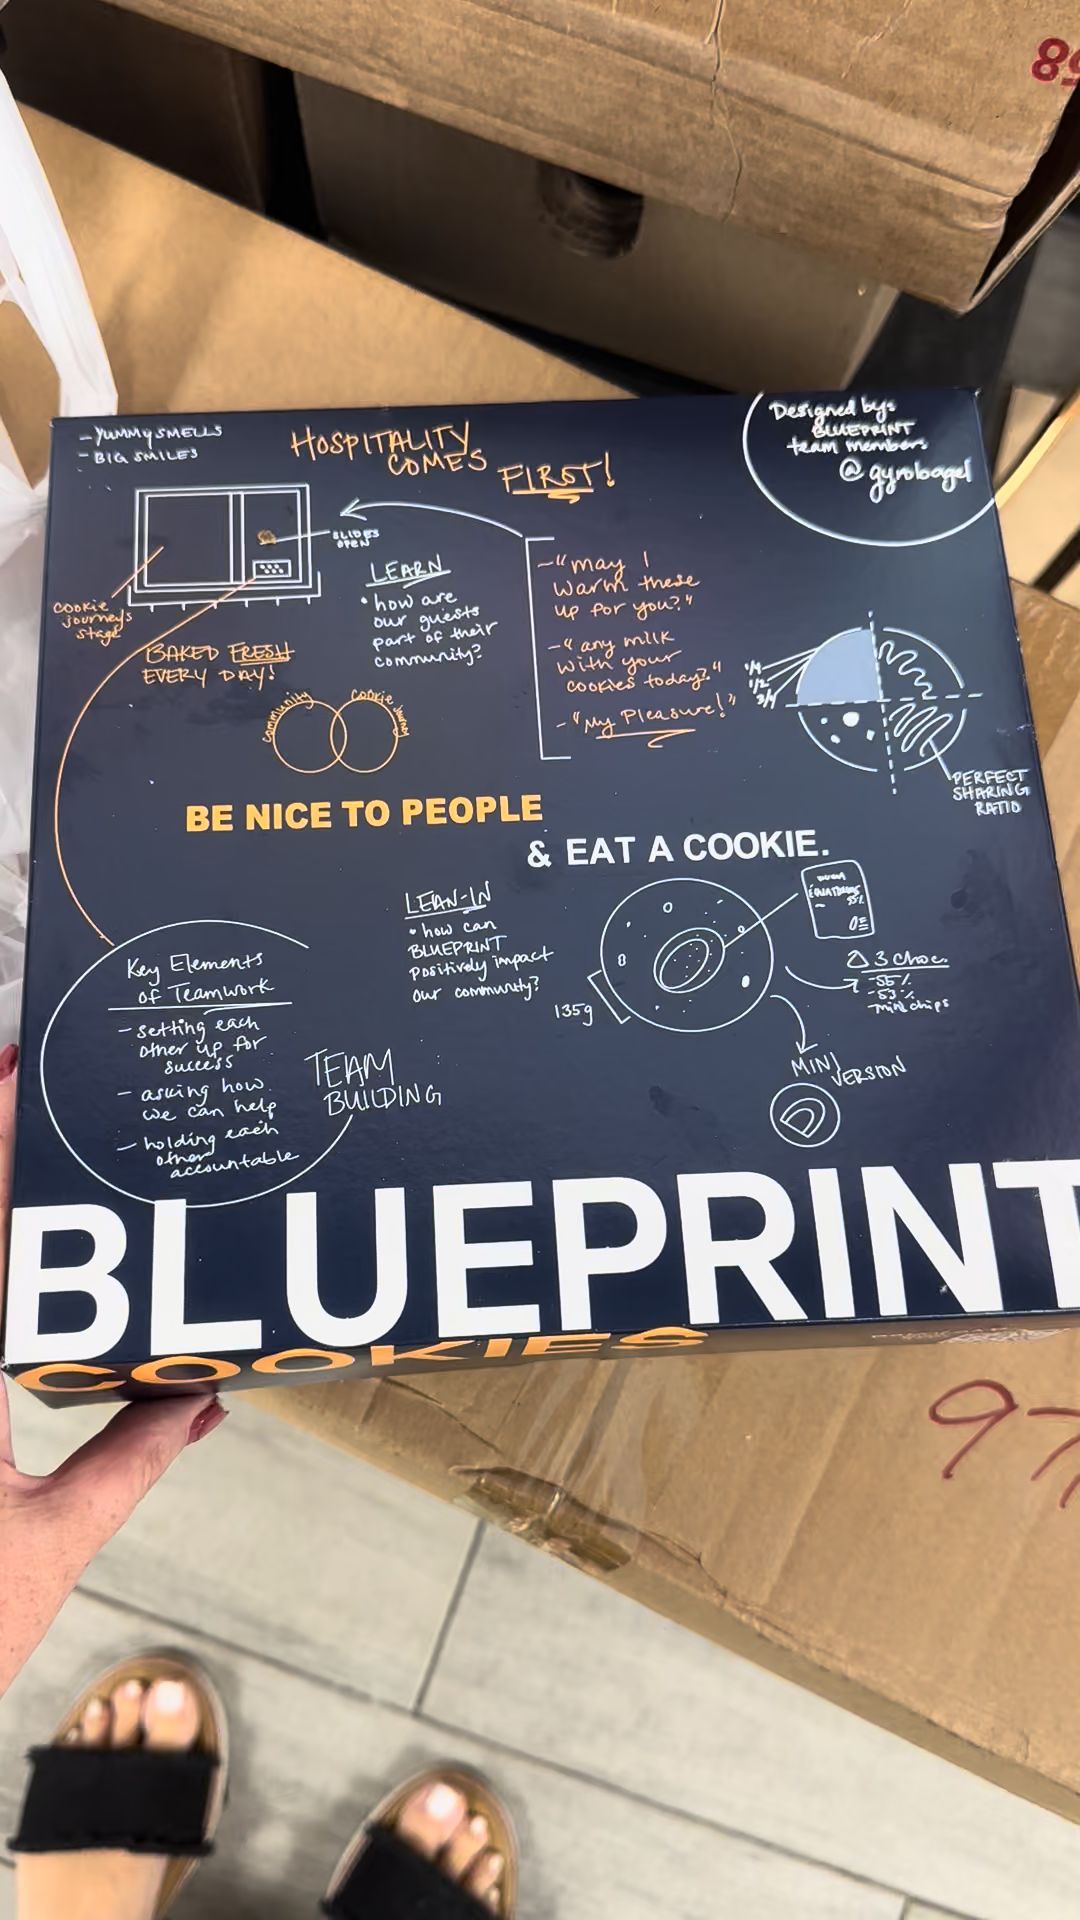 - YUMMY SMELLS
- BIG SMILES
HOSPITALITY
COMES
FIRST!
Designed by:
BLUEPRINT
team members
@gyrobagel
SLIDES
OPEN
cookie
journeys
stage
BAKED FRESH
EVERY DAY!
LEARN
• how are
our guests
part of their
community?
- "may I
warm these
up for you?"
- "any milk
with your
cookies today?"
- "My Pleasure!"
1/4
1/2
3/4
PERFECT
SHARING
RATIO
community
Cookie
BE NICE TO PEOPLE
& EAT A COOKIE.
LEAN-IN
• how can
BLUEPRINT
positively impact
our community?
135g
55%
Δ 3 Choc.
- 55%
- 53%
- mini chips
MINI
VERSION
Key Elements
of Teamwork
- setting each
other up for
success
- asking how
we can help
- holding each
other
accountable
TEAM
BUILDING
BLUEPRINT
COOKIES
97